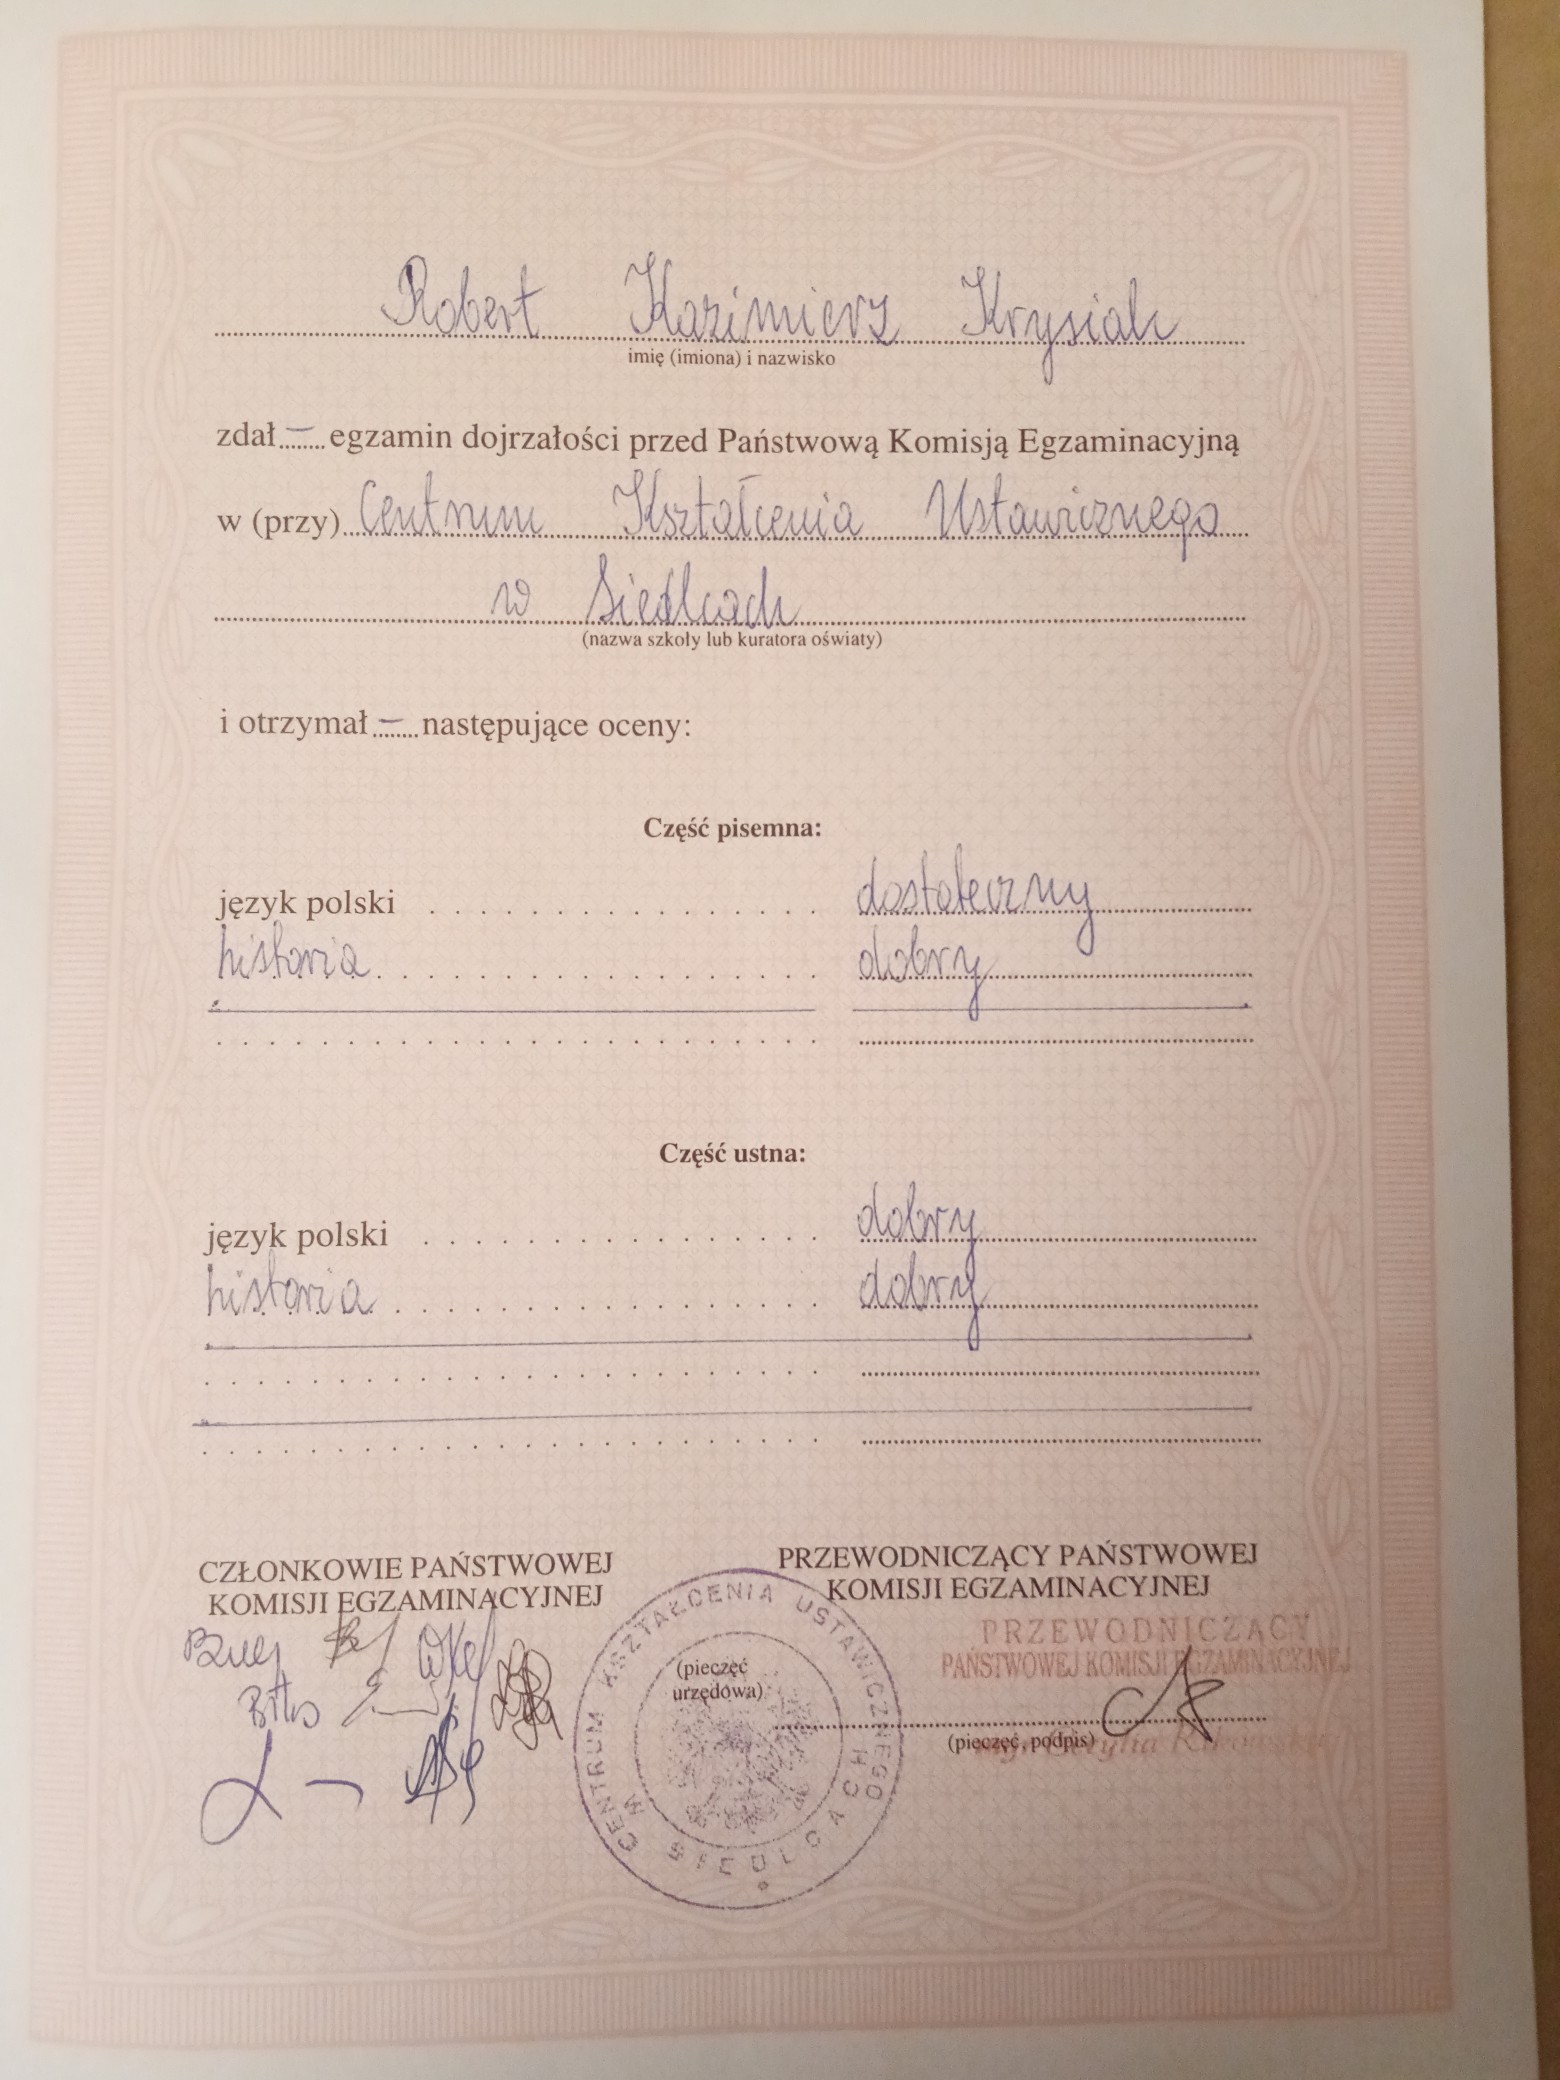 Robert Kazimierz Krysiak
imię (imiona) i nazwisko
zdał – egzamin dojrzałości przed Państwową Komisją Egzaminacyjną
w (przy) Centrum Kształcenia Ustawicznego
w Siedlcach
(nazwa szkoły lub kuratora oświaty)
i otrzymał – następujące oceny:
Część pisemna:
język polski dostateczny
historia dobry
Część ustna:
język polski dobry
historia dobry
CZŁONKOWIE PAŃSTWOWEJ
KOMISJI EGZAMINACYJNEJ
PRZEWODNICZĄCY PAŃSTWOWEJ
KOMISJI EGZAMINACYJNEJ
CENTRUM KSZTAŁCENIA USTAWICZNEGO
W SIEDLCACH
(pieczęć
urzędowa)
PRZEWODNICZĄCY
PAŃSTWOWEJ KOMISJI EGZAMINACYJNEJ
(pieczęć, podpis)